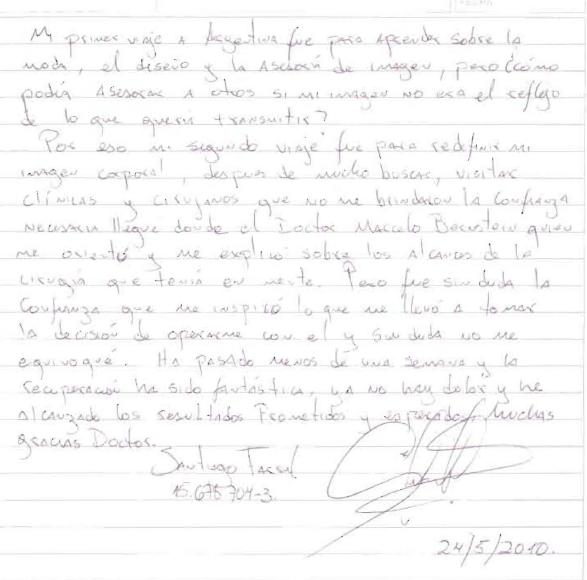 Mi primer viaje a Argentina fue para aprender sobre la
moda, el diseño y la asesoría de imagen, pero ¿cómo
podía asesorar a otros si mi imagen no era el reflejo
de lo que quería transmitir?
Por eso mi segundo viaje fue para redefinir mi
imagen corporal, despues de mucho buscar, visitar
clínicas y cirujanos que no me brindaron la confianza
necesaria llegue donde el Doctor Marcelo Bernstein quien
me orientó y me explicó sobre los alcances de la
cirugía que tenía en mente. Pero fue sin duda la
confianza que me inspiró lo que me llevó a tomar
la decisión de operarme con el y sin duda no me
equivoqué. Ha pasado menos de una semana y la
recuperación ha sido fantástica, ya no hay dolor y he
alcanzado los resultados Prometidos y esperados, Muchas
gracias Doctor.
Santiago
15.675704-3.
24/5/2010.